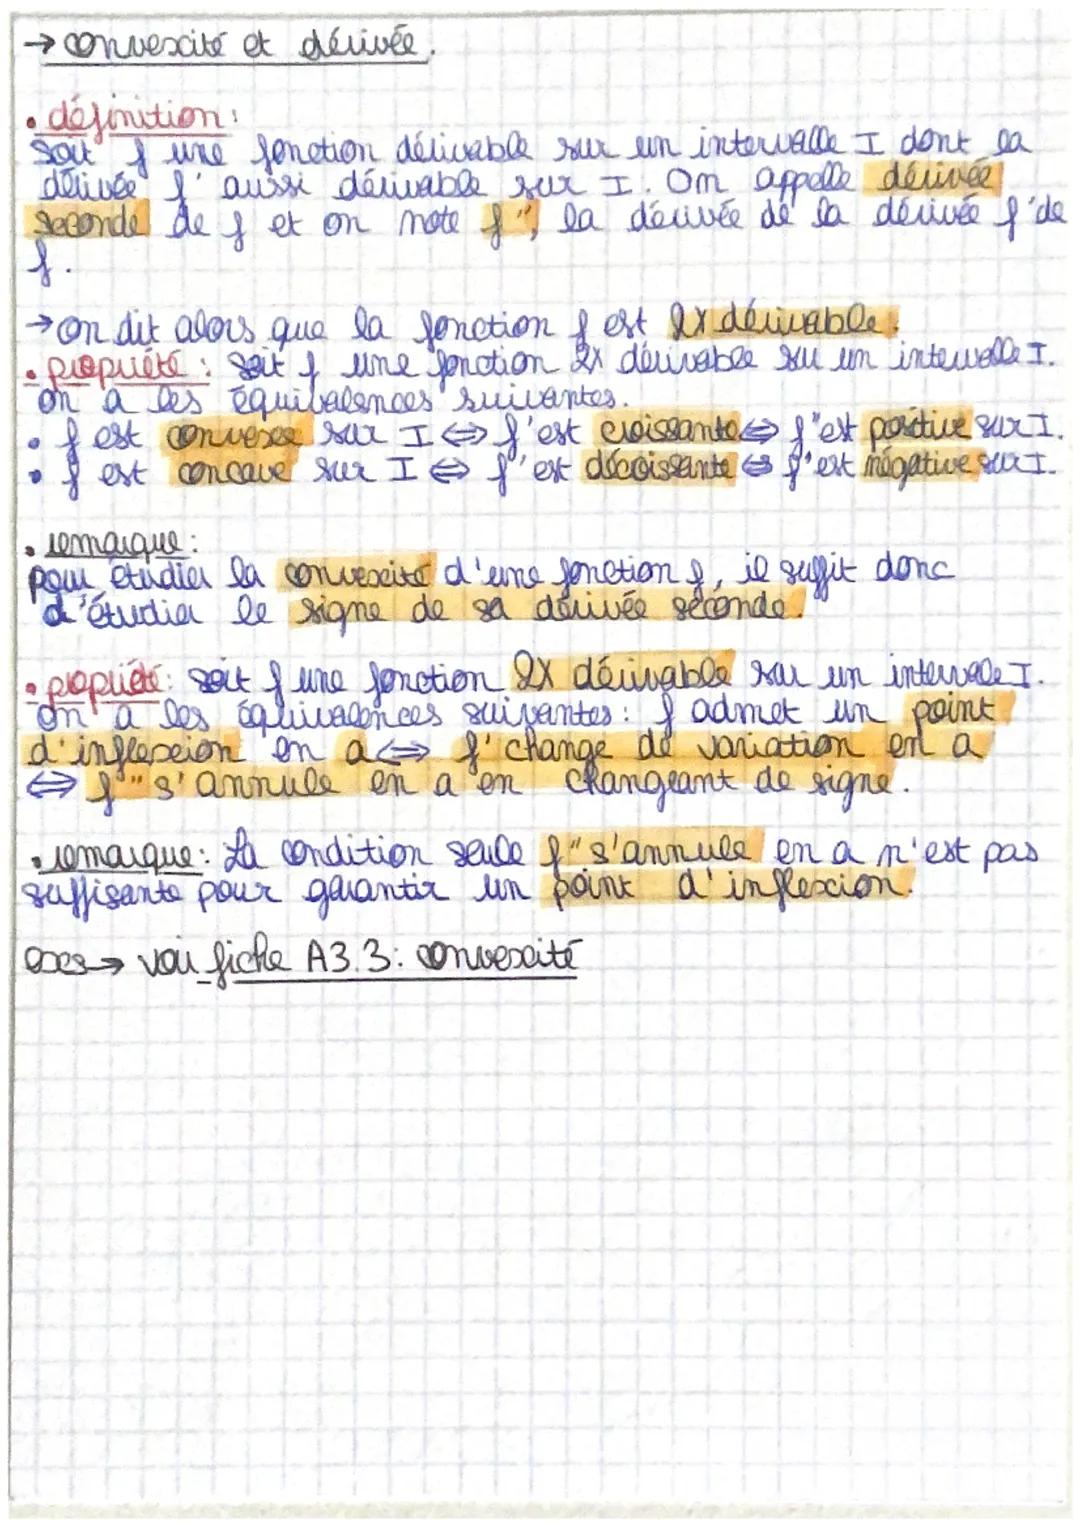 → convexité et dérivée.
• définition :
Soit f une fonction dérivable sur un intervalle I dont la
dérivée f' aussi dérivable sur I. On appelle dérivée
seconde de f et on note f", la dérivée de la dérivée f' de
f.
→ on dit alors que la fonction f est 2x dérivable.
• propriété : Soit f une fonction 2x dérivable sur un intervalle I.
on a les équivalences suivantes.
• f est convexe sur I ⇔ f' est croissante ⇔ f" est positive sur I.
• f est concave sur I ⇔ f' est décroissante ⇔ f" est négative sur I.
• remarque :
pour étudier la convexité d'une fonction f, il suffit donc
d'étudier le signe de sa dérivée seconde.
• propriété : soit f une fonction 2x dérivable sur un intervalle I.
on a les équivalences suivantes : f admet un point
d'inflexion en a ⇔ f' change de variation en a
⇔ f" s'annule en a en changeant de signe.
• remarque : La condition seule f" s'annule en a n'est pas
suffisante pour garantir un point d'inflexion.
exes → voir fiche A3.3 : convexité